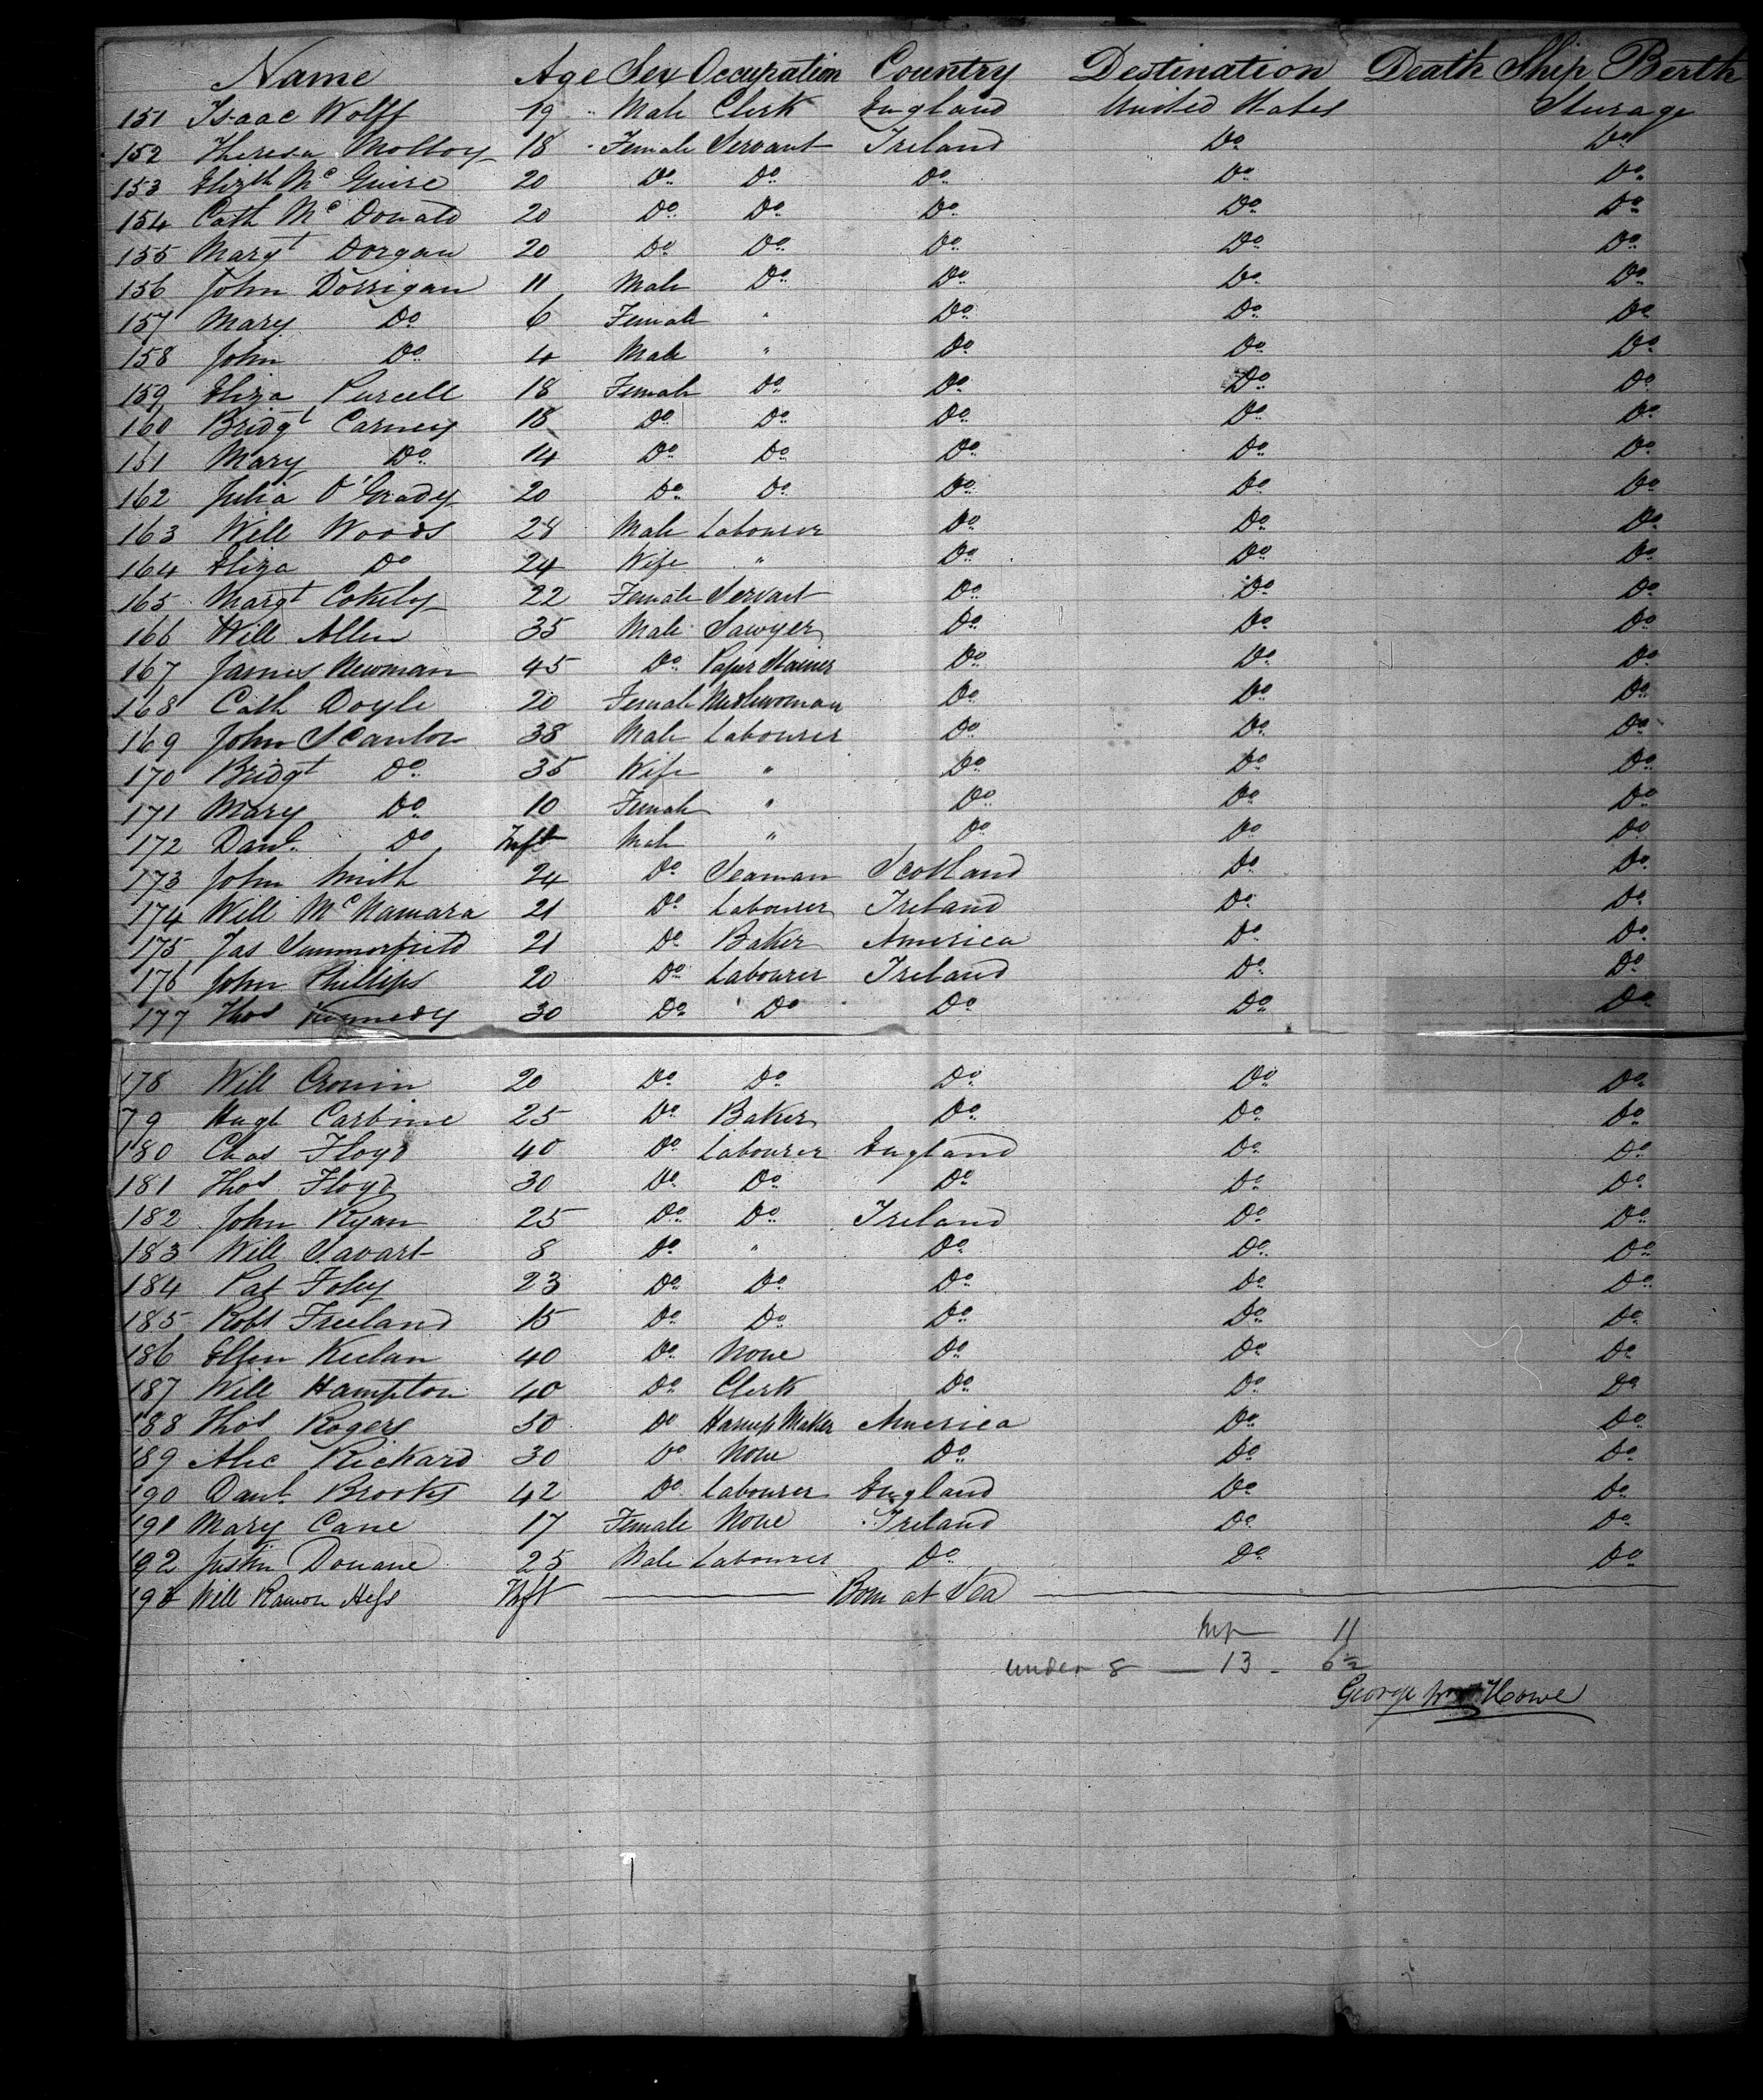 Name Age Sex Occupation Country Destination Death Ship Berth
151 Isaac Wolff 19 Male Clerk England United States Sturage
152 Theresa Molloy 18 Female Servant Ireland Do Do
153 Elizth Mc Guire 20 Do Do Do Do Do
154 Cath Mc Donald 20 Do Do Do Do Do
155 Margt Dorgan 20 Do Do Do Do Do
156 John Dorrigan 11 Male Do Do Do Do
157 Mary Do 6 Female " Do Do Do
158 John Do 4 Male " Do Do Do
159 Eliza Purcell 18 Female Do Do Do Do
160 Bridgt Carney 18 Do Do Do Do Do
151 Mary Do 14 Do Do Do Do Do
162 Julia O'Grady 20 Do Do Do Do Do
163 Will Woods 28 Male Labourer Do Do Do
164 Eliza Do 24 Wife " Do Do Do
165 Margt Cokely 22 Female Servant Do Do Do
166 Will Allen 35 Male Sawyer Do Do Do
167 James Newman 45 Do Paper Stainer Do Do Do
168 Cath Doyle 20 Female Needlewoman Do Do Do
169 John Scanlon 38 Male Labourer Do Do Do
170 Bridgt Do 35 Wife " Do Do Do
171 Mary Do 10 Female " Do Do Do
172 Danl. Do Inft Male " Do Do Do
173 John Smith 24 Do Seaman Scotland Do Do
174 Will McNamara 21 Do Labourer Ireland Do Do
175 Jas Summerfield 21 Do Baker America Do Do
176 John Phillips 20 Do Labourer Ireland Do Do
177 Thos Kennedy 30 Do Do Do Do Do
178 Will Cronin 20 Do Do Do Do Do
79 Hugh Carbine 25 Do Baker Do Do Do
180 Chas Floyd 40 Do Labourer England Do Do
181 Thos Floyd 30 Do Do Do Do Do
182 John Ryan 25 Do Do Ireland Do Do
183 Will Savart 8 Do " Do Do Do
184 Pat Foley 23 Do Do Do Do Do
185 Robt Freeland 15 Do Do Do Do Do
186 Keelan 40 Do None Do Do Do
187 Will Hampton 40 Do Clerk Do Do Do
188 Thos Rogers 30 Do Harness Maker America Do Do
189 Alec Rickard 30 Do None Do Do Do
190 Danl. Brooks 42 Do Labourer England Do Do
191 Mary Cane 17 Female None Ireland Do Do
192 Justin Donane 25 Male Labourer Do Do Do
193 Will Ramon Hess Inft Born at Sea
Inf 11
under 8 13 6½
George Howe